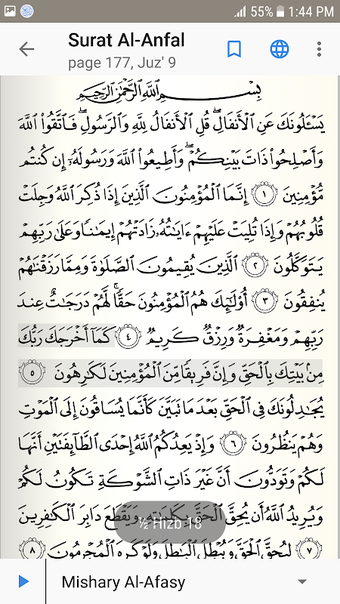 55% 1:44 PM
Surat Al-Anfal
page 177, Juz' 9
بِسْمِ اللَّهِ الرَّحْمَٰنِ الرَّحِيمِ
يَسْـَٔلُونَكَ عَنِ الْأَنفَالِ ۖ قُلِ الْأَنفَالُ لِلَّهِ وَالرَّسُولِ ۖ فَاتَّقُوا۟ اللَّهَ
وَأَصْلِحُوا۟ ذَاتَ بَيْنِكُمْ ۖ وَأَطِيعُوا۟ اللَّهَ وَرَسُولَهُۥٓ إِن كُنتُم
مُّؤْمِنِينَ ١ إِنَّمَا الْمُؤْمِنُونَ الَّذِينَ إِذَا ذُكِرَ اللَّهُ وَجِلَتْ
قُلُوبُهُمْ وَإِذَا تُلِيَتْ عَلَيْهِمْ ءَايَٰتُهُۥ زَادَتْهُمْ إِيمَٰنًا وَعَلَىٰ رَبِّهِمْ
يَتَوَكَّلُونَ ٢ الَّذِينَ يُقِيمُونَ الصَّلَوٰةَ وَمِمَّا رَزَقْنَٰهُمْ
يُنفِقُونَ ٣ أُو۟لَٰٓئِكَ هُمُ الْمُؤْمِنُونَ حَقًّا ۚ لَّهُمْ دَرَجَٰتٌ عِندَ
رَبِّهِمْ وَمَغْفِرَةٌ وَرِزْقٌ كَرِيمٌ ٤ كَمَآ أَخْرَجَكَ رَبُّكَ
مِنۢ بَيْتِكَ بِالْحَقِّ وَإِنَّ فَرِيقًا مِّنَ الْمُؤْمِنِينَ لَكَٰرِهُونَ ٥
يُجَٰدِلُونَكَ فِى الْحَقِّ بَعْدَ مَا تَبَيَّنَ كَأَنَّمَا يُسَاقُونَ إِلَى الْمَوْتِ
وَهُمْ يَنظُرُونَ ٦ وَإِذْ يَعِدُكُمُ اللَّهُ إِحْدَى الطَّآئِفَتَيْنِ أَنَّهَا
لَكُمْ وَتَوَدُّونَ أَنَّ غَيْرَ ذَاتِ الشَّوْكَةِ تَكُونُ لَكُمْ
وَيُرِيدُ اللَّهُ أَن يُحِقَّ الْحَقَّ بِكَلِمَٰتِهِۦ وَيَقْطَعَ دَابِرَ الْكَٰفِرِينَ
½ Hizb 18
٧ لِيُحِقَّ الْحَقَّ وَيُبْطِلَ الْبَٰطِلَ وَلَوْ كَرِهَ الْمُجْرِمُونَ ٨
Mishary Al-Afasy